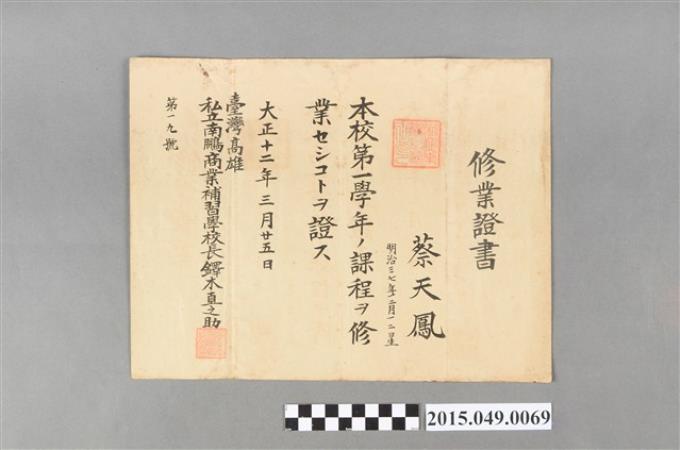 修業證書
蔡天鳳
明治三七年二月一二日生
本校第一學年ノ課程ヲ修
業セシコトヲ證ス
大正十二年三月廿五日
臺灣高雄
私立南鵬商業補習學校長鐸木直之助
第一九號
2015.049.0069